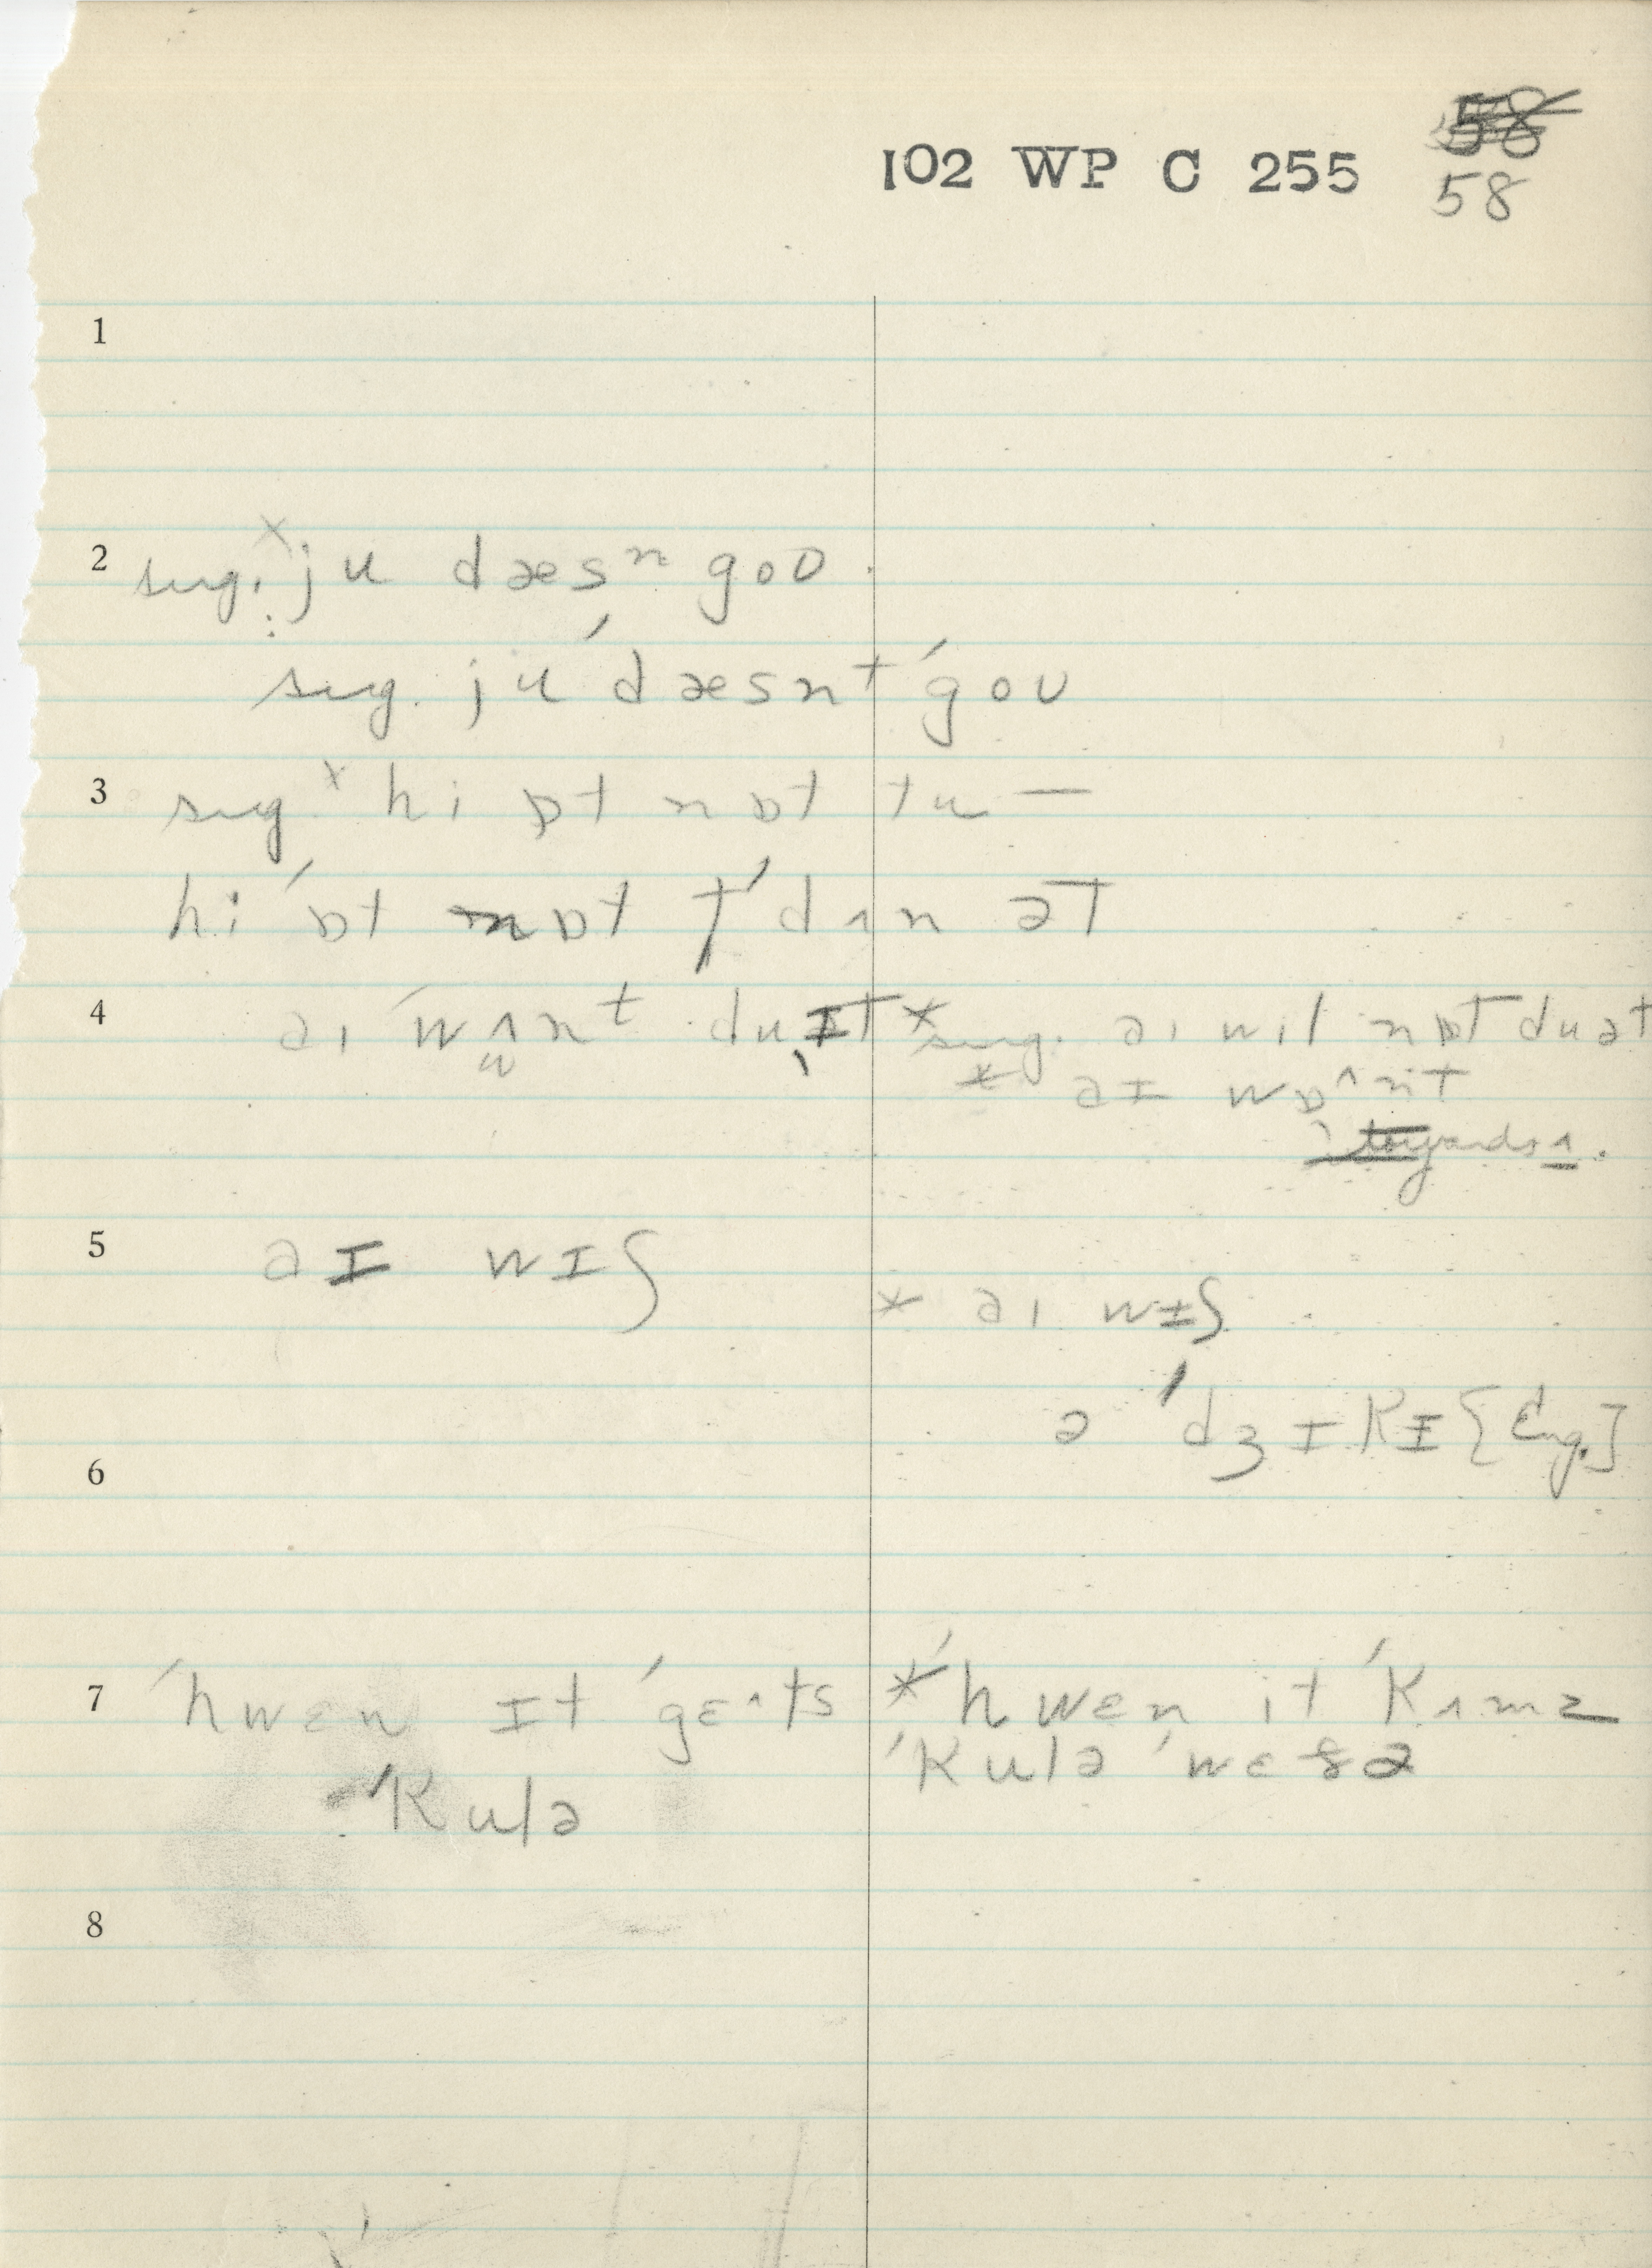 58
102 WP C 255
58
1
2 sug. ˣ ju dæsⁿ goʊ.
sug. ju ˈdæsnt ˈgoʊ
3 sug ˣ hi ɒt nɒt tu —
hi ˈɒt nɒt tˈ dʌn əT
4 aɪ ˈwʌnt du ɪT * sug. aɪ wil nɒT du ət
w * aɪ wɒ^nt
towards ʌ.
5 aɪ wɪʃ
* aɪ wɪʃ
ə ˈdʒɪKɪ [Eng.]
6
7 ˈhwɛn ɪt ˈgɛ^ts * ˈhwɛn it ˈKʌmz
ˈKulə ˈwɛðə
ˈKulə
8